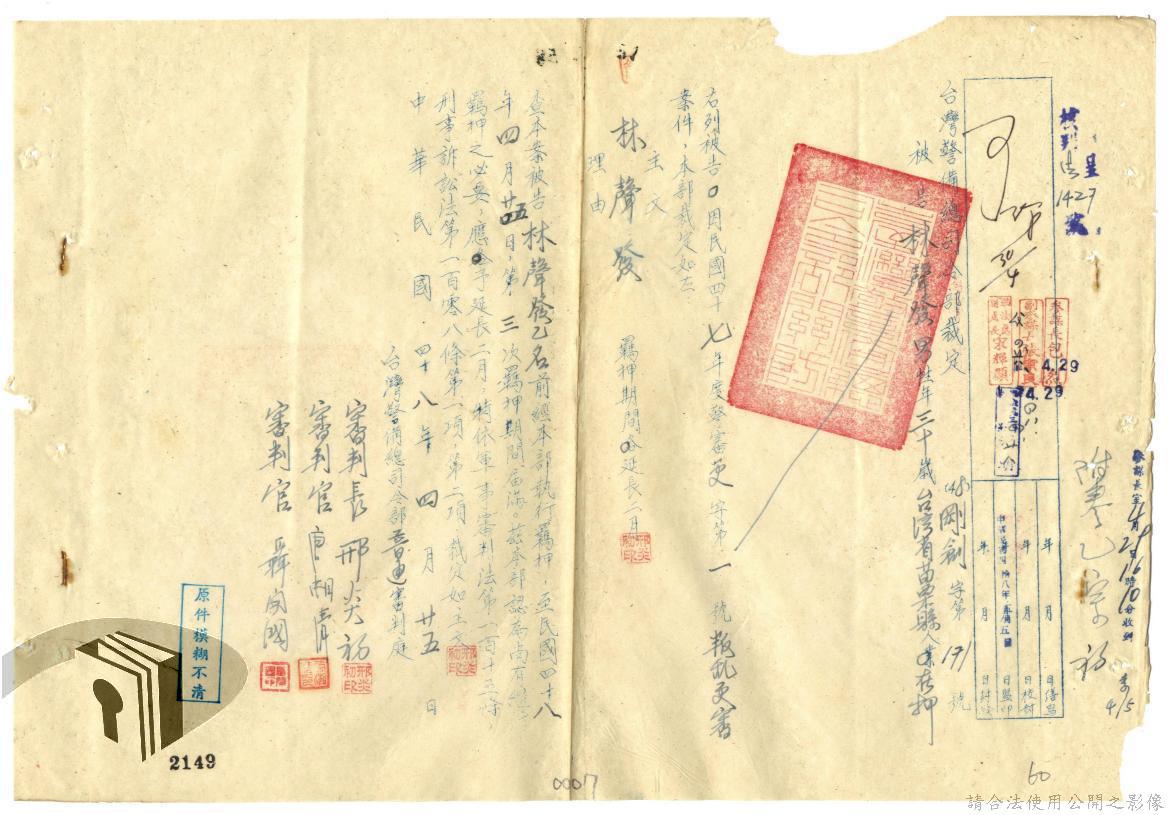 呈
1427
號
4.29
4.29
附卷乙宗
4/5
台灣警備總司令部裁定
(48)剛創字第171號
被告林聲發男性年三十歲台湾省苗栗縣人業在押
右列被告因民國四十七年度警審更字第一號叛亂更審
案件，本部裁定如左
主文
林聲發 羈押期間延長二月
理由
查本案被告林聲發乙名前經本部執行羈押，至民國四十八
年四月廿五日，第三次羈押期間屆滿。茲本部認為尚有繼續
羈押之必要，應予延長二月，特依軍事審判法第一百十三條
刑事訴訟法第一百零八條第一項、第二項裁定如主文
中華民國四十八年四月廿五日
台灣警備總司令部普通審判庭
審判長 邢炎初
審判官
審判官 聶開國
原件模糊不清
2149
0007
60
請合法使用公開之影像